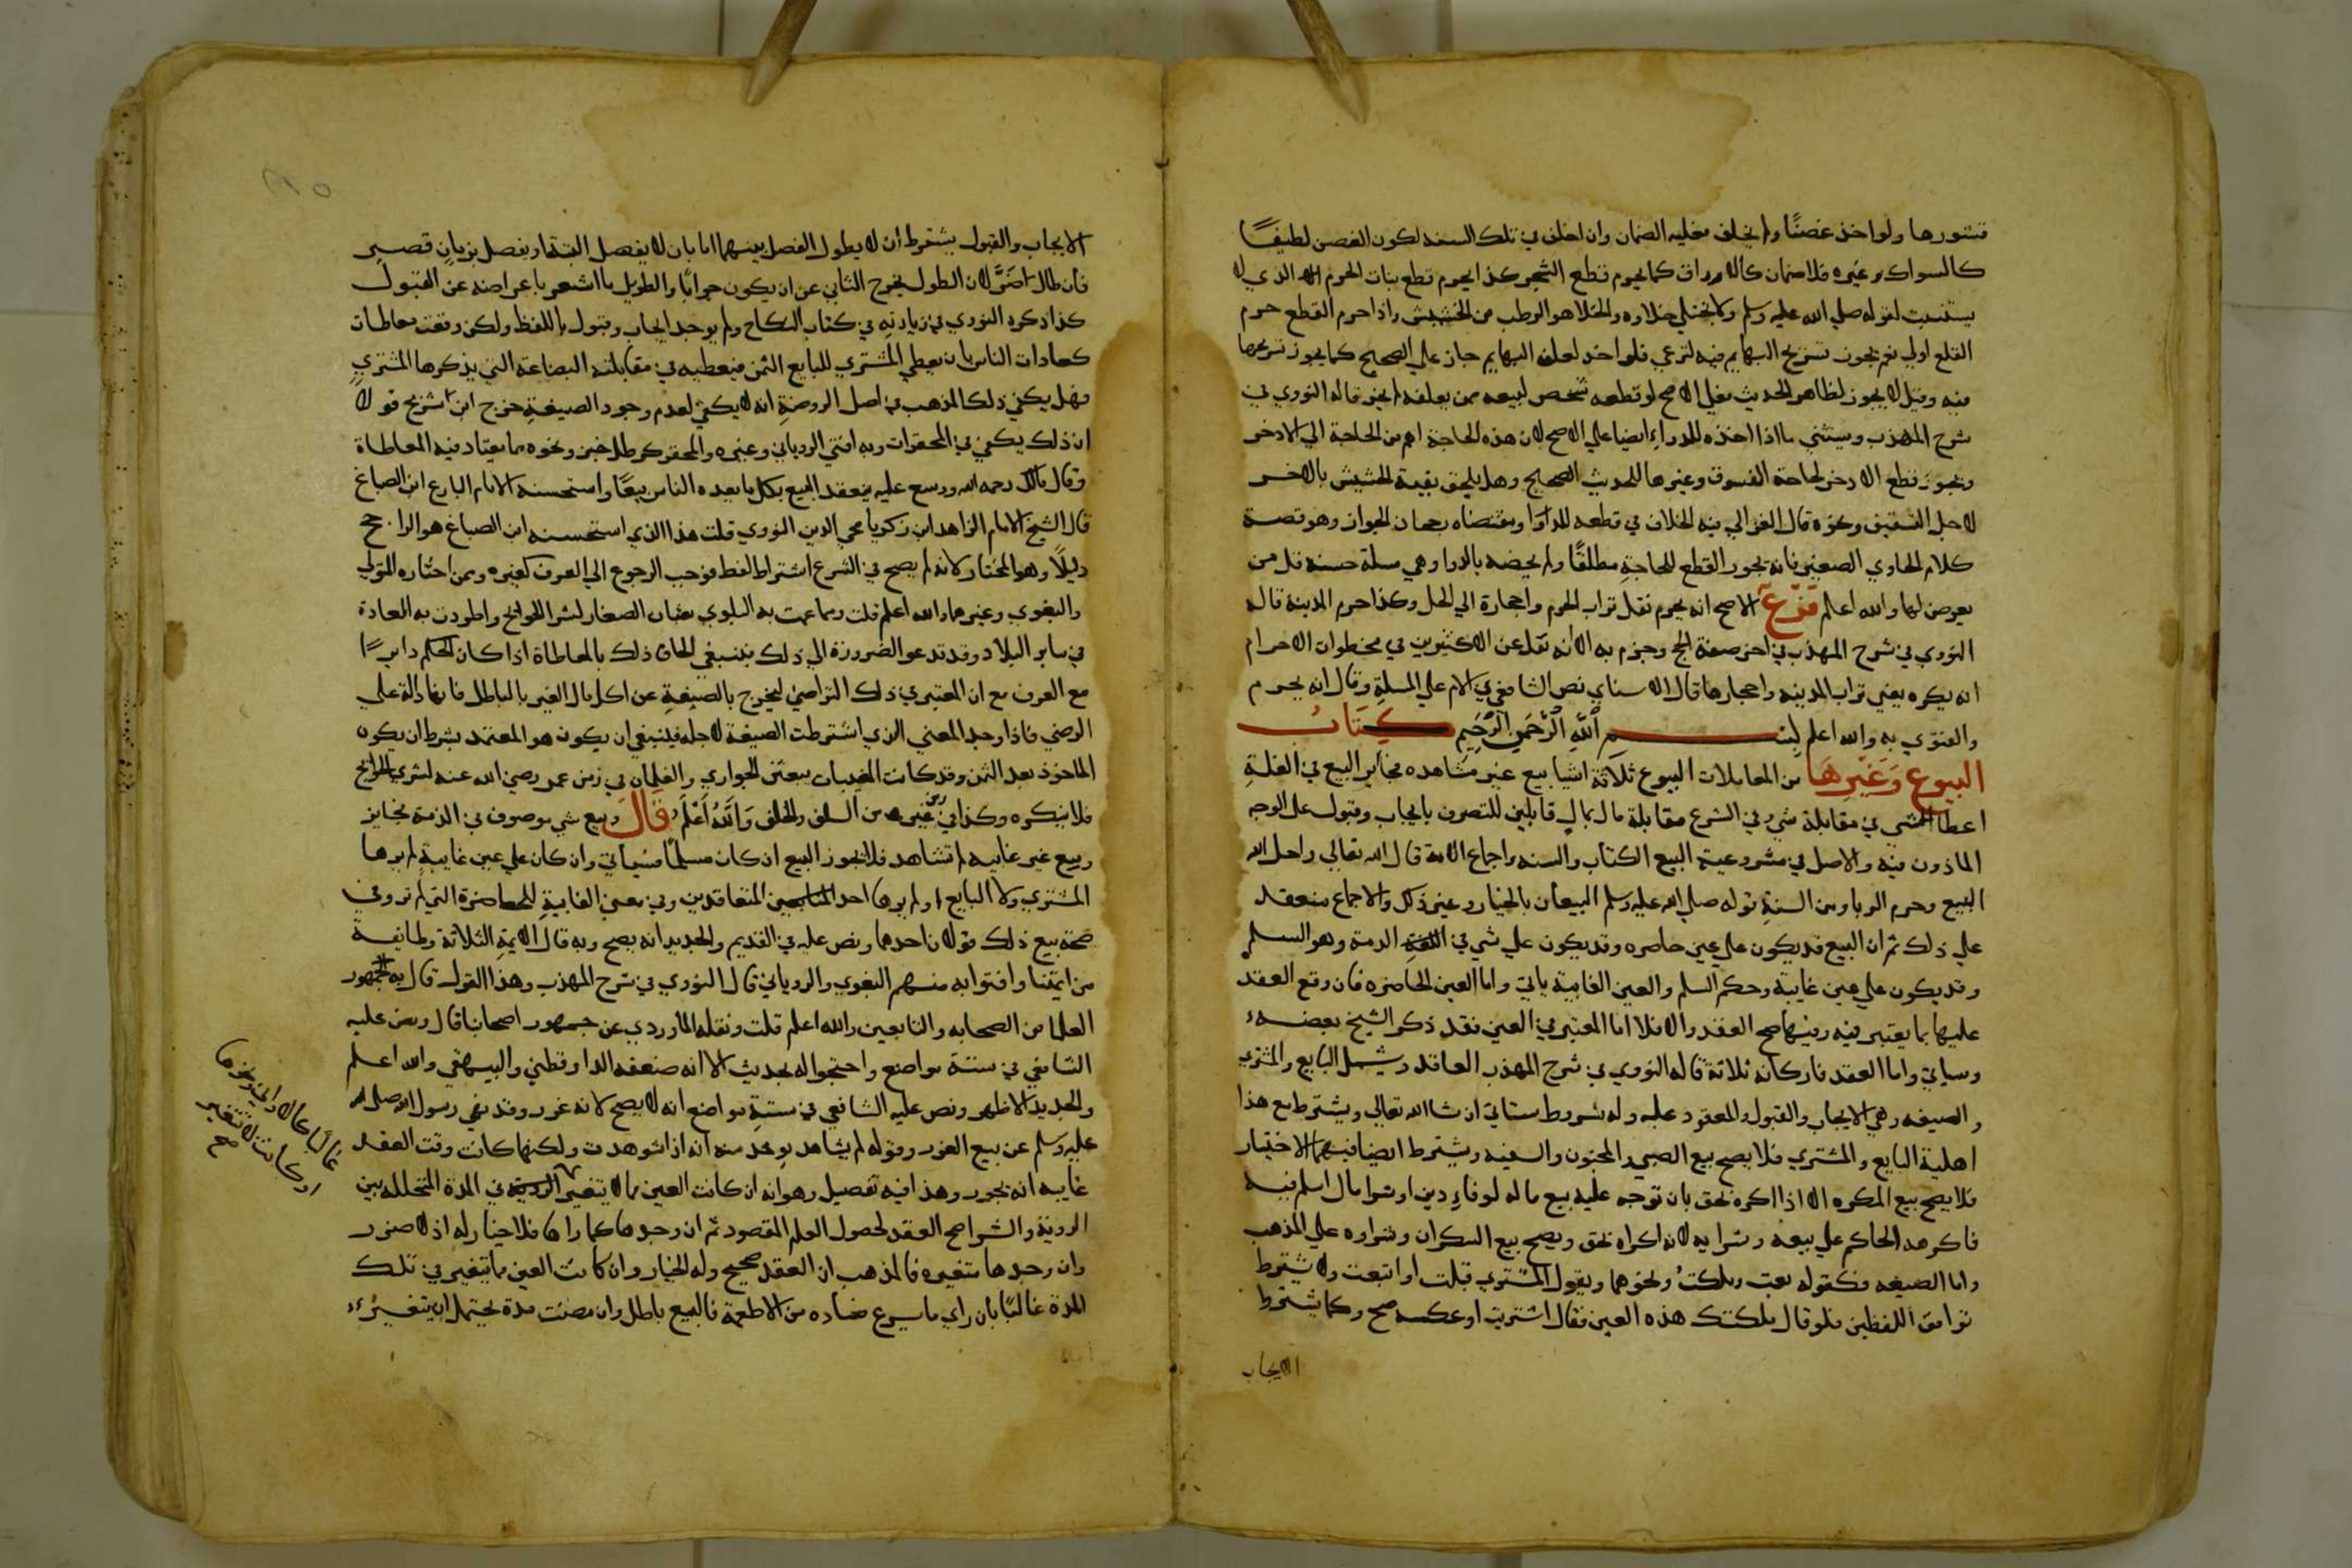 قشورها ولو اخذ غصنًا ولم يخلف فعليه الضمان وان اخلف في تلك السنه لكون الغصن لطيفًا
كالسواك وغيره فلا ضمان كالاوراق كما يحرم قطع الشجر كذا يحرم قطع نبات الحرم الذي لا
يستنبت لقوله صلي الله عليه وسلم ولا يختلي خلاوه والخلا هو الرطب من الحشيش واذا حرم القطع حرم
القلع اولي نعم يجوز تسريح البهايم فيه لترعي فلو اخذ لعلف البهايم جاز علي الصحيح كما يجوز تسريحها
فيه وقيل لا يجوز لظاهر الحديث فعلي الاصح لو قطعه شخص لبيعه ممن يعلفه لم يجز قاله النووي في
شرح المهذب ويستثني ما اذا اخذه للدواء ايضا علي الاصح لان هذه الحاجة اهم من الحاجة الي الاذخر
ويجوز قطع الاذخر لحاجة السقوف وغيرها للحديث الصحيح وهل يلحق بقية الحشيش بالاذخر
لاجل التسقيف ونحوه قال الغزالي فيه الخلاف في قطعه للدواء ومقتضاه رجحان الجواز وهو قضية
كلام الحاوي الصغير فانه يجوز القطع للحاجة مطلقًا ولم يخصه بالدوا وهي مسلة حسنة قل من
يعرض لها والله اعلم فرع الاصح انه يحرم نقل تراب الحرم واحجارة الي الحل وكذا حرم المدينة قاله
النووي في شرح المهذب في اخر صفة الحج وجزم به الا انه نقل عن الاكثرين في محظوران الاحرام
انه يكره يعني تراب المدينه واحجارها قال الاسناي نص الشافعي في الام علي المسلة وقال انه يحرم
والفتوي به والله اعلم بسم الله الرحمن الرحيم كتاب
البيوع وغيرها من المعاملات البيوع ثلاثة اشيا بيع عين مشاهده فجايز البيع في اللغة
اعطا الشي في مقابلة شي وفي الشرع مقابلة مال بمال قابلين للتصرف بايجاب وقبول علي الوجه
الماذون فيه والاصل في مشروعية البيع الكتاب والسنه واجماع الامة قال الله تعالي واحل الله
البيع وحرم الربا ومن السنة قوله صلي الله عليه وسلم البيعان بالخيار وغير ذلك والاجماع منعقد
علي ذلك ثم ان البيع قد يكون علي عين حاضره وقد يكون علي شي في الذمة وهو السلم
وقد يكون علي عين غايبة وحكم السلم والعين الغايبة ياتي واما العين الحاضره فان وقع العقد
عليها بما يعتبر فيه وفيها صح العقد والا فلا اما المعتبر في العين فقد ذكر الشيخ بعضه
وسياتي واما العقد فاركانه ثلاثة قاله النووي في شرح المهذب العاقد ويشمل البايع والمشتري
والصيغه وهي الايجاب والقبول والمعقود عليه وله شروط ستاتي ان شا الله تعالي ويشترط مع هذا
اهلية البايع والمشتري فلا يصح بيع الصبي والمجنون والسفيه ويشترط ايضا فيهما الاختيار
فلا يصح بيع المكره الا اذا اكره بحق بان توجه عليه بيع ماله لوفاء دين او شرا مال اسلم فيه
فاكرهه الحاكم علي بيعه وشرايه لانه اكراه بحق ويصح بيع السكران وشراوه علي المذهب
واما الصيغه فكقوله بعت وملكت ونحوهما ويقول المشتري قبلت او ابتعت ولا يشترط
توافق اللفظين فلو قال ملكتك هذه العين فقال اشتريت او عكسه صح وكما يشترط
الايجاب
الايجاب والقبول يشترط ان لا يطول الفصل بينهما اما بان لا يفصل البتة او يفصل بزمان قصير
فان طال اضرّ لان الطول يخرج الثاني عن ان يكون جوابًا والطويل ما اشعر باعراضه عن القبول
كذا ذكره النووي في زيادته في كتاب النكاح ولم يوجد ايجاب وقبول باللفظ ولكن وقعت معاطات
كعادات الناس بان يعطي المشتري للبايع الثمن فيعطيه في مقابلته البضاعة التي يذكرها المشتري
فهل يكفي ذلك المذهب في اصل الروضة انه لا يكفي لعدم وجود الصيغة خرج ابن سريج قولا
ان ذلك يكفي في المحقرات وبه افتي الروياني وغيره والمحقر كرطل خبز ونحوه مما يعتاد فيه المعاطاة
وقال مالك رحمه الله ووسع عليه ينعقد البيع بكل ما يعده الناس بيعًا واستحسنه الامام البارع ابن الصباغ
قال الشيخ الامام الزاهد ابن زكريا محي الدين النووي قلت هذا الذي استحسنه ابن الصباغ هو الراجح
دليلًا وهو المختار ولانه لم يصح في الشرع اشتراط لفظ فوجب الرجوع الي العرف كغيره وممن اختاره المتولي
والبغوي وغيرهما والله اعلم قلت ومما عمت به البلوي بعثان الصغار لشرا الحوايج واطردت به العادة
في ساير البلاد وقد تدعو الضرورة الي ذلك فينبغي الحاق ذلك بالمعاطاة اذا كان الحكم دايرًا
مع العرف مع ان المعتبر في ذلك التراضي ليخرج بالصيغة عن اكل مال الغير بالباطل فانها دالة علي
الرضي فاذا وجد المعني الذي اشترطت الصيغة لاجله فينبغي ان يكون هو المعتمد بشرط ان يكون
الماخوذ بعد الثمن وقد كانت المغيبات يبعثن الجواري والغلمان في زمن عمر رضي الله عنه لشري الحوايج
فلا ينكره وكذا في زمن غيره من السلف والخلف والله اعلم قال وبيع شي موصوف في الذمة فجايز
وبيع عين غايبه لم تشاهد فلا يجوز البيع ان كان مسلمًا فسياتي وان كان علي عين غايبة لم يرها
المشتري ولا البايع او لم يرها احد المتعاقدين وفي معني الغايبة الحاضرة التي لم تر وفي
صحة بيع ذلك قولان احدهما ونص عليه في القديم والجديد انه يصح وبه قال الايمة الثلاثة وطايفة
من ايمتنا وافتوا به منهم البغوي والروياني قال النووي في شرح المهذب وهذا القول قال به جمهور
العلما من الصحابه والتابعين والله اعلم قلت ونقله الماوردي عن جمهور اصحابنا قال ونص عليه
الشافعي في ستة مواضع واحتجوا له بحديث الا انه ضعفه الدارقطني والبيهقي والله اعلم
والجديد الاظهر ونص عليه الشافعي في ستة مواضع انه لا يصح لانه غرر وقد نهي رسول الله صلي الله
عليه وسلم عن بيع الغرر وقوله لم يشاهد يوخذ منه انه اذا شوهدت ولكنها كانت وقت العقد
غايبه انه يجوز وهذا فيه تفصيل وهو انه ان كانت العين مما لا يتغير في المدة المتخلله بين
الروية والشرا صح العقد لحصول العلم المقصود ثم ان وجدها كما راها فلا خيار له اذ لا ضرر
وان وجدها متغيره فالمذهب ان العقد صحيح وله الخيار وان كانت العين مما يتغير في تلك
المدة غالبًا بان راي ما يسرع فساده من الاطعمة فالبيع باطل وان مضت مدة يحتمل ان يتغير
غالبًا كالاواني ونحوها
او كانت لا تتغير
صح